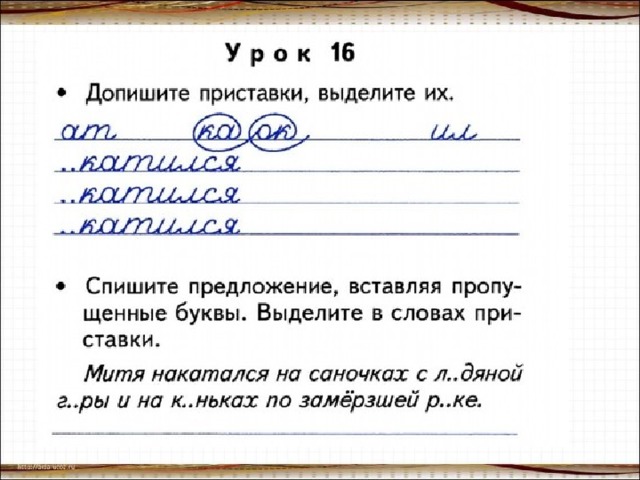 Урок 16
• Допишите приставки, выделите их.
ат ка ок ил
..катился
..катился
..катился
• Спишите предложение, вставляя пропу-
щенные буквы. Выделите в словах при-
ставки.
Митя накатался на саночках с л..дяной
г..ры и на к..ньках по замёрзшей р..ке.